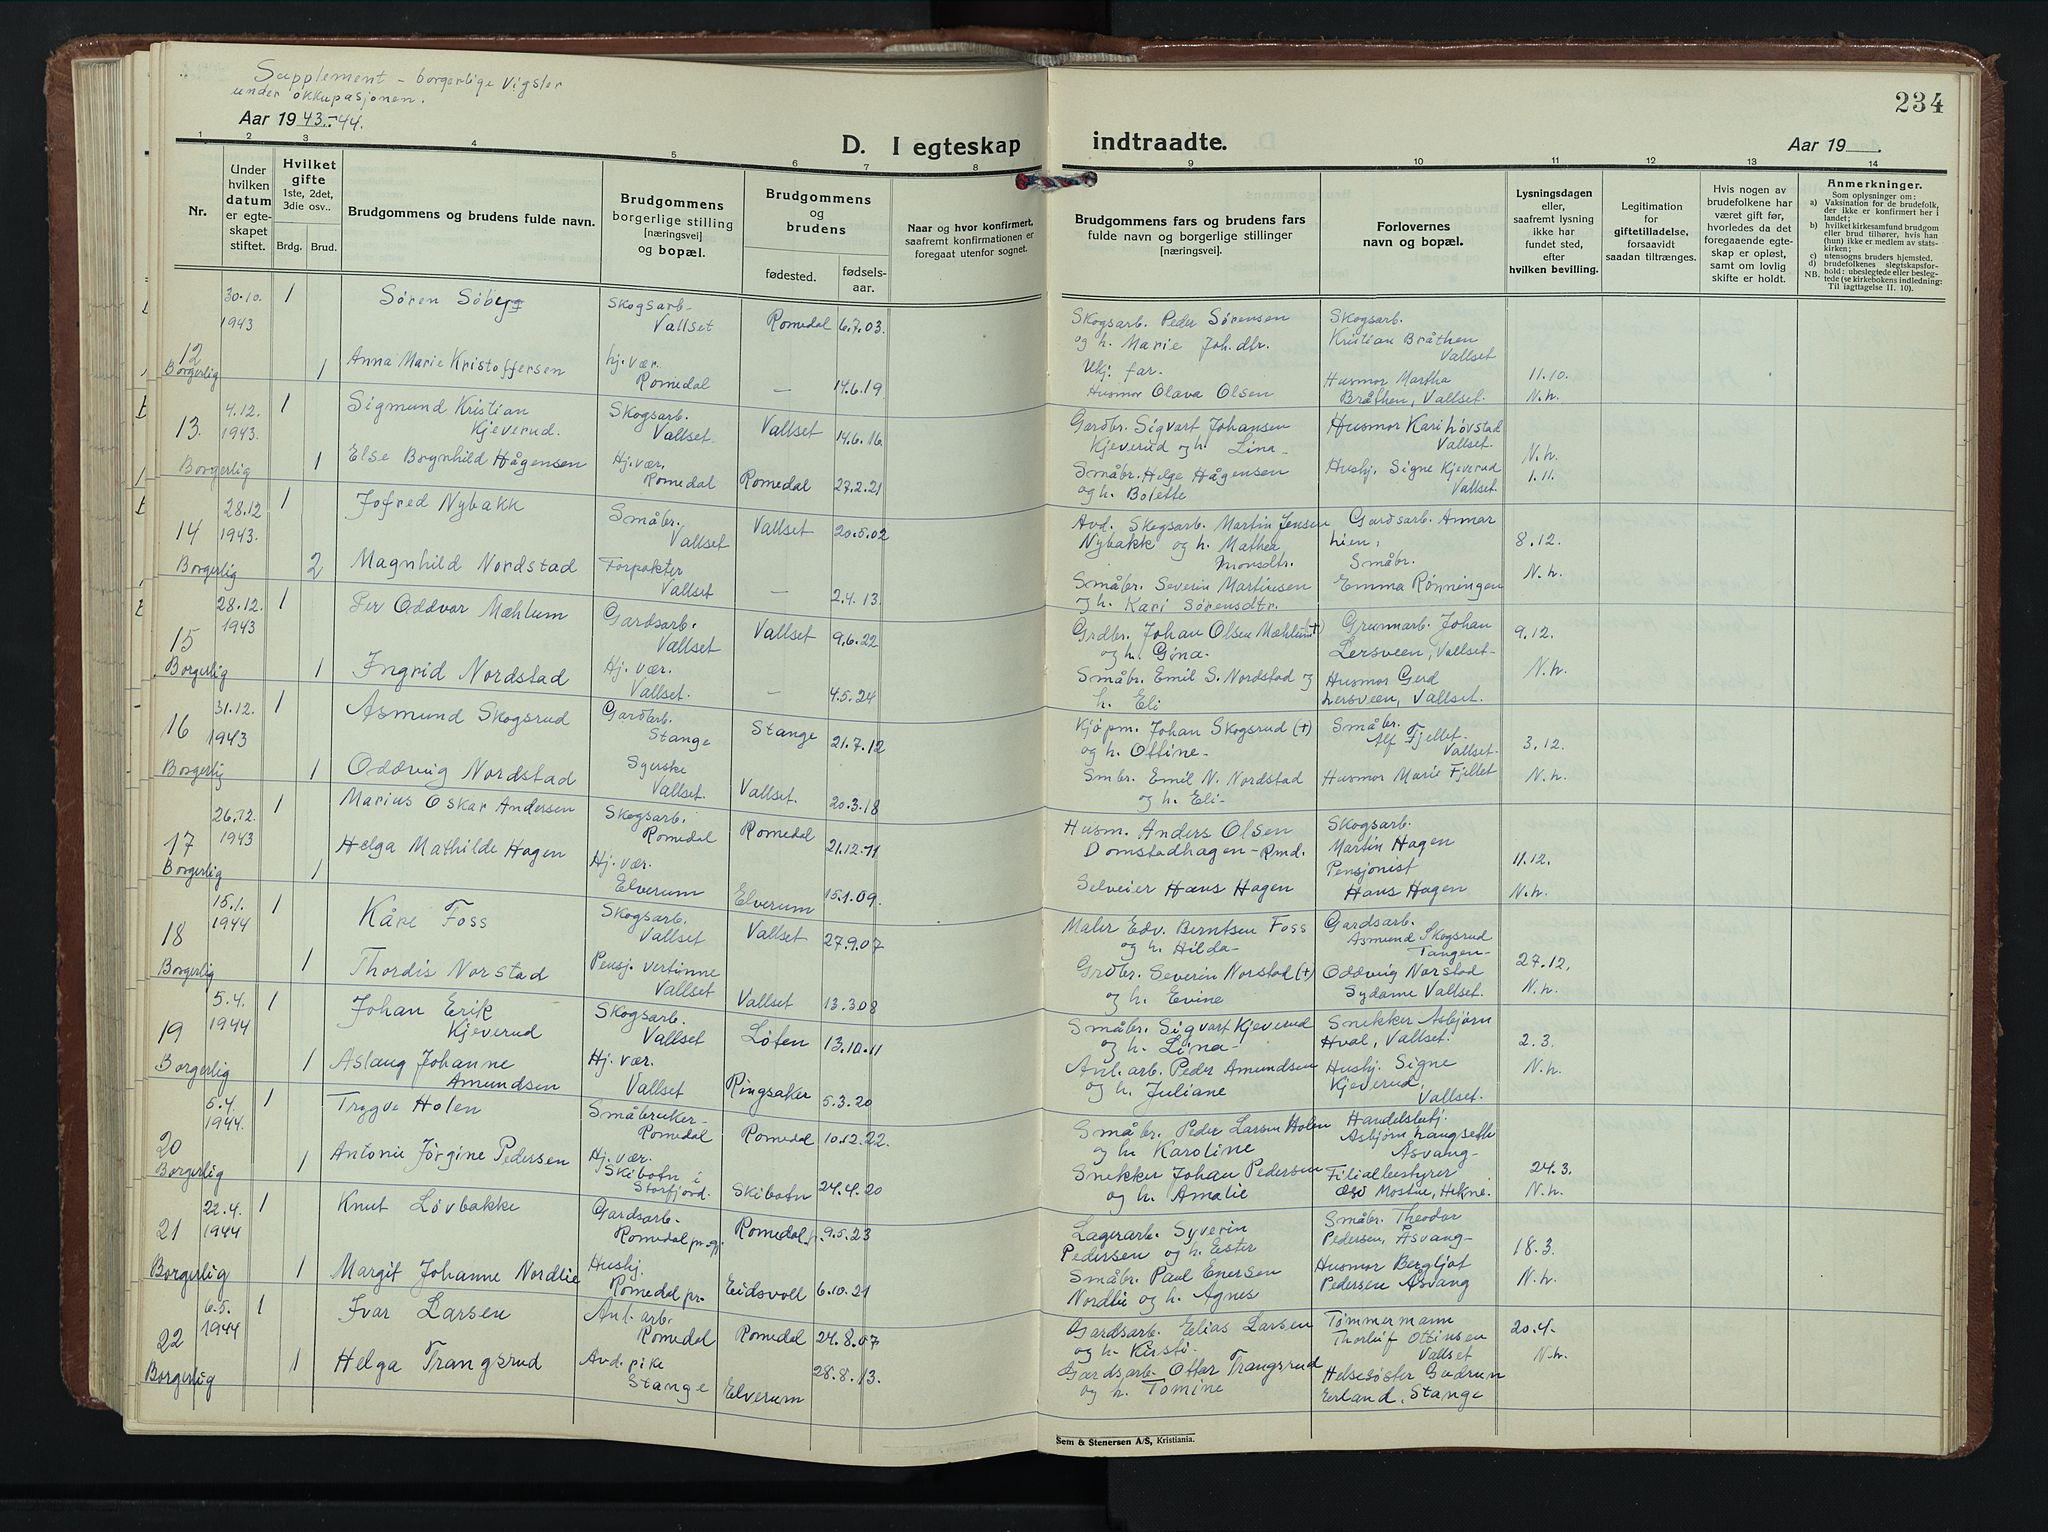 Supplement - borgerlige Vigsler
under okkupasjonen.
Aar 1943-44.
D. I egteskap
1 2 3 4 5 6 7 8
Nr.
Under hvilken datum er egteskapet stiftet.
Hvilket gifte
1ste, 2det, 3die osv..
Brdg. Brud.
Brudgommens og brudens fulde navn.
Brudgommens borgerlige stilling [næringsvei] og bopæl.
Brudgommens og brudens
fødested. fødselsaar.
Naar og hvor konfirmert, saafremt konfirmationen er foregaat utenfor sognet.
12 30.10. 1943 1 Søren Søbyg Skogsarb. Vallset Romedal 6.7.03.
Borgerlig 1 Anna Marie Kristoffersen hj.vær. Romedal — 14.6.19
13. 4.12. 1943. 1 Sigmund Kristian Kjeverud. Skogsarb. Vallset. Vallset 14.6.16
Borgerlig 1 Else Borgnhild Hågensen Hj.vær. Romedal Romedal 27.2.21
14 28.12 1943. 1 Jofred Nybakk Småbr. Vallset Vallset 20.5.02
Borgerlig 2 Magnhild Nordstad Forpakter Vallset — 2.4.13.
15 28.12. 1943 1 Per Oddvar Mæhlum Gardsarb. Vallset Vallset 9.6.22
Borgerlig 1 Ingrid Nordstad Hj.vær. Vallset. — 4.5.24
16 31.12. 1943 1 Asmund Skogsrud Gardarb. Stange Stange 21.7.12
Borgerlig 1 Oddvug Nordstad Syerske Vallset. Vallset. 20.3.18
17 26.12. 1943 1 Marius Oskar Andersen Skogsarb. Romedal Romedal 21.12.11
Borgerlig 1 Helga Mathilde Hagen Hj.vær. Elverum Elverum 15.1.09.
18 15.1. 1944 1 Kåre Foss Skogsarb. Vallset Vallset 27.9.07
Borgerlig 1 Thordis Norstad Pensj. vertinne Vallset Vallset 13.3.08
19 5.4. 1944 1 Johan Erik Kjeverud Skogsarb. Vallset Løten 13.10.11
Borgerlig 1 Aslaug Johanne Amundsen Hj.vær. Vallset Ringsaker 5.3.20
20 5.4. 1944. 1 Trygve Holen Småbruker- Romedal Romedal 10.12.22.
Borgerlig 1 Antonie Jørgine Pedersen Hj.vær. Skibotn i Storfjord. Skibotn 24.4.20
21 22.4. 1944 1 Knut Løvbakke Gardsarb. Romedal pr.gj. Romedal pr. 9.5.23
Borgerlig 1 Margit Johanne Nordlie Hushj. Romedal pr. Eidsvoll 6.10.21
22 6.5. 1944 1 Ivar Larsen Anl.arb. Romedal Romedal 24.8.07
Borgerlig 1 Helga Trangsrud Avd.pike Stange Elverum 28.8.13.
234
indtraadte.
Aar 19
9 10 11 12 13 14
Brudgommens fars og brudens fars fulde navn og borgerlige stillinger [næringsvei].
Forlovernes navn og bopæl.
Lysningsdagen eller, saafremt lysning ikke har fundet sted, efter hvilken bevilling.
Legitimation for giftetilladelse, forsaavidt saadan tiltrænges.
Hvis nogen av brudefolkene har været gift før, hvorledes da det foregaaende egteskap er opløst, samt om lovlig skifte er holdt.
Anmerkninger.
Som oplysninger om:
a) Vaksination for de brudefolk, der ikke er konfirmert her i landet;
b) hvilket kirkesamfund brudgom eller brud tilhører, hvis han (hun) ikke er medlem av statskirken;
c) utensogns bruders hjemsted.
d) brudefolkenes slegtskapsforhold: ubeslegtede eller beslegtede (se kirkebokens indledning:
NB. Til iagttagelse II. 10).
Skogsarb. Peder Sørensen og h. Marie Joh.dtr. Skogsarb. Kristian Bråthen Vallset
Ukj. far. Husmor Olava Olsen Husmor Martha Bråthen, Vallset. 11.10. N.h.
Gardbr. Sigvart Johansen Kjeverud og h. Lina- Husmor Kari Løvstad Vallset. N.h.
Småbr. Helge Hågensen og h. Bolette Hushj. Signe Kjeverud Vallset. 1.11.
Avd. Skogsarb. Martin Jensen Nybakk og h. Mathea Monsdtr. Gardsarb. Annar Lien, 8.12.
Småbr. Severin Martinsen og h. Kari Sørensdtr. Småbr. Emma Rønningen N.h.
Grdbr. Johan Olsen Mæhlum(+) og h. Gina. Grunnarb. Johan Lersveen, Vallset- 9.12.
Småbr. Emil S. Nordstad og h. Eli Husmor Gerd Lersveen, Vallset. N.h.
Kjøpm. Johan Skogsrud (+) og h. Ottine- Småbr. Alf Fjellet- Vallset- 3.12.
Smbr. Emil N. Nordstad og h. Eli- Husmor Marie Fjellet N.h.
Husm. Anders Olsen Domstadhagen-Rmd. Skogsarb. Martin Hagen 11.12.
Selveier Hans Hagen Pensjonist Hans Hagen N.h.
Maler Edv. Berntsen Foss og h. Hilda- Gardsarb. Asmund Skogsrud Tangen- 27.12.
Grdbr. Severin Norstad (+) og h. Evine Oddvug Norstad Sydame Vallset. N.h.
Småbr. Sigvart Kjeverud og h. Lina- Snekker Asbjørn Hval, Vallset. 2.3.
Anl.arb. Peder Amundsen og h. Juliane Hushj. Signe Kjeverud, Vallset. N.h.
Småbr. Peder Larsen Holen og h. Karoline Handelsbetj. Asbjørn Langseth Åsvang- 24.3.
Snekker Johan Pedersen og h. Amalie Filialbestyrer Mostue, Hekne. N.h.
Lagerarb. Syverin Pedersen og h. Ester Småbr. Theodor Pedersen, Åsvang- 18.3.
Småbr. Paul Enersen Nordlie og h. Agnes Husmor Bergljot Pedersen Åsvang N.h.
Gardsarb. Elias Larsen og h. Kirsti. Tømmermann Thorleif Ottinsen Vallset 20.4.
Gardsarb. Ottar Trangsrud og h. Tomine Helsesøster Gudrun Eerland, Stange N.h.
Sem & Stenersen A/S, Kristiania.